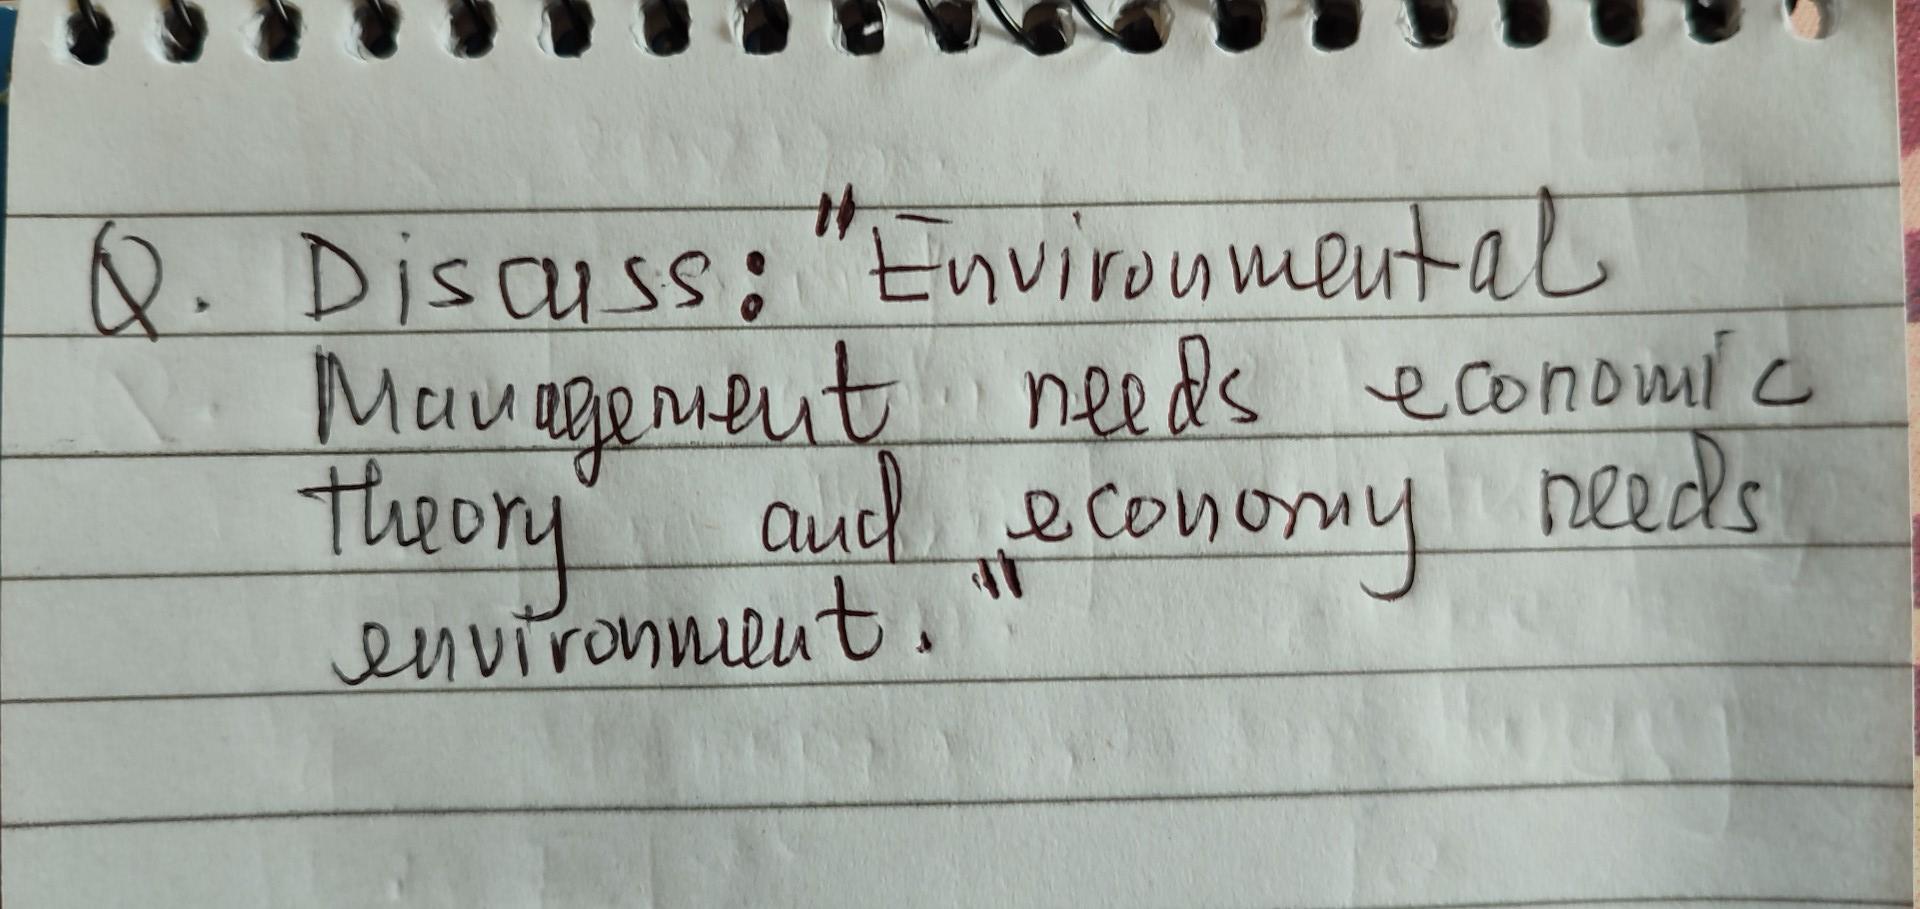 Q. Discuss: "Environmental
Management needs economic
theory and economy needs
environment."